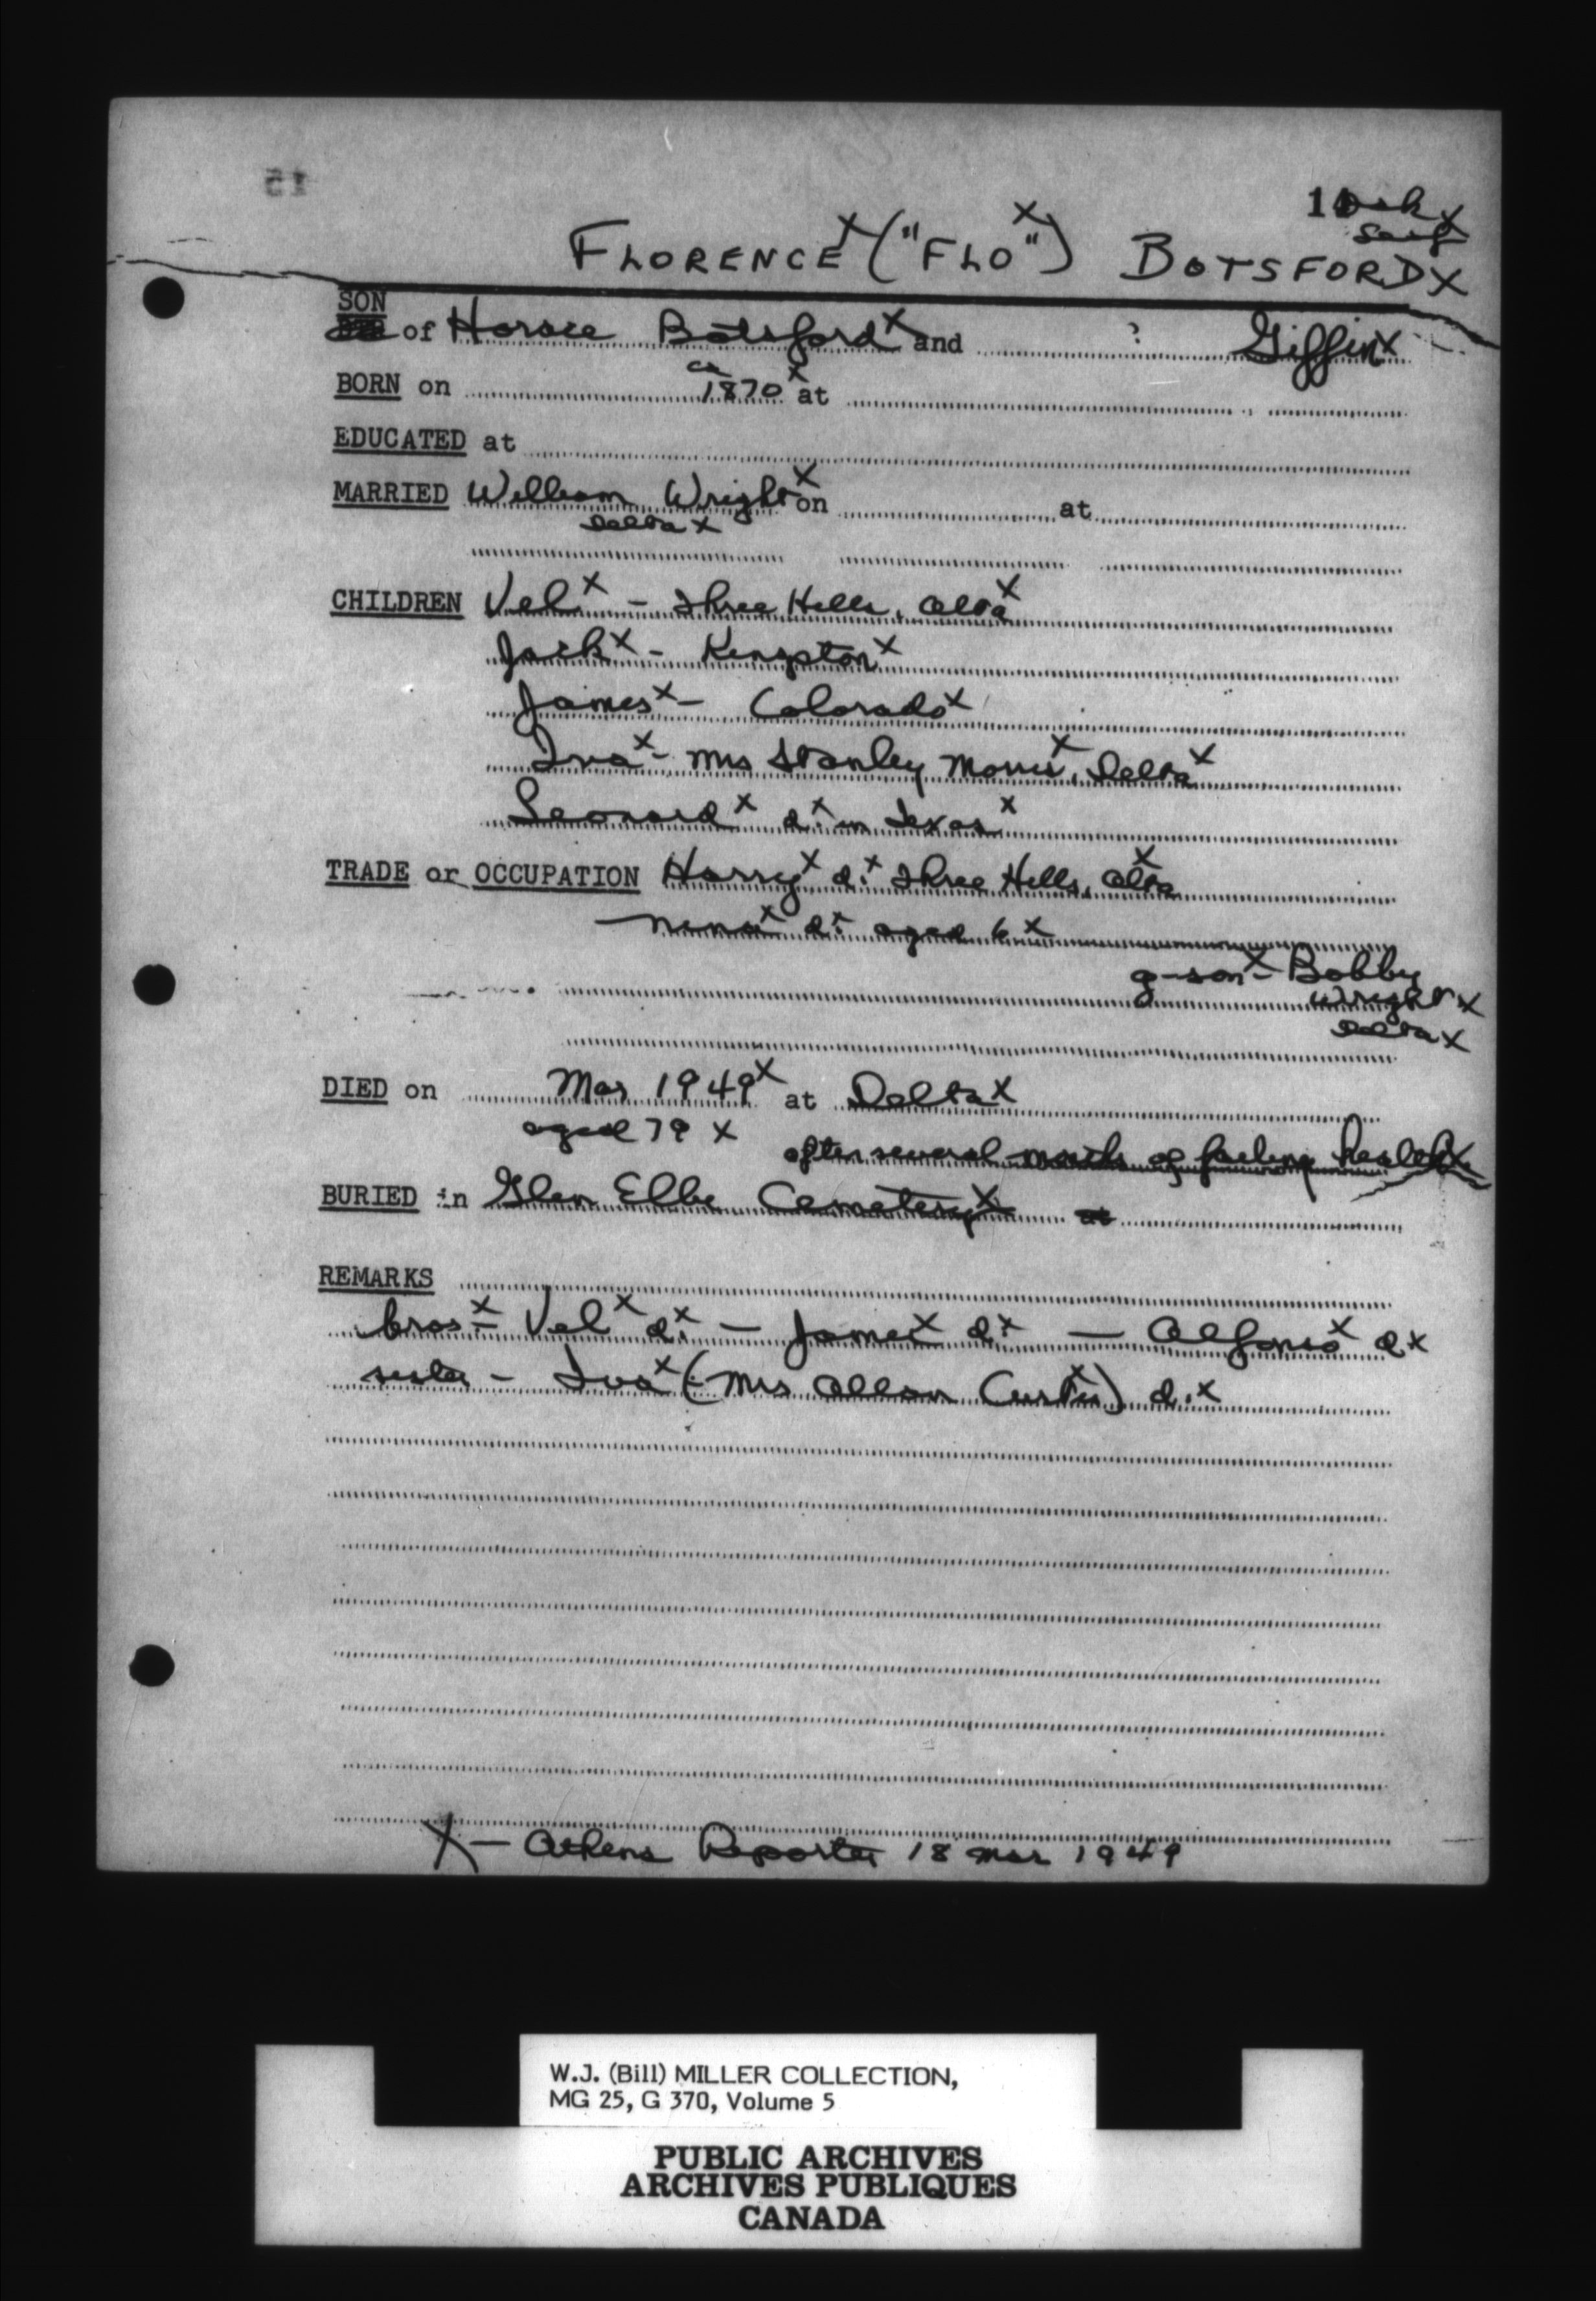 15
11
FLORENCE x ("FLO" x) BOTSFORD x
SON
of Horace Botsford x and ? Giffin x
BORN on ca 1870 x at
EDUCATED at
MARRIED William Wright x on at
Delta x
CHILDREN Vel x - Three Hills, Alta x
Jack x - Kingston x
James x - Colorado x
Iva x - Mrs Stanley Morris x, Delta x
Leonard x d. x in Texas x
TRADE or OCCUPATION Harry x d. x Three Hills, Alta x
Nina x d. x aged 6 x
g-son x - Bobby
Wright x
Delta x
DIED on Mar 1949 x at Delta x
aged 79 x after several months of failing health x
BURIED in Glen Elbe Cemetery x at
REMARKS
bros. x - Vel x d. x - James x d. x - Alfonso x d x
sister - Iva x (Mrs Allan Curtis x) d. x
X - Athens Reporter 18 Mar 1949
W.J. (Bill) MILLER COLLECTION,
MG 25, G 370, Volume 5
PUBLIC ARCHIVES
ARCHIVES PUBLIQUES
CANADA